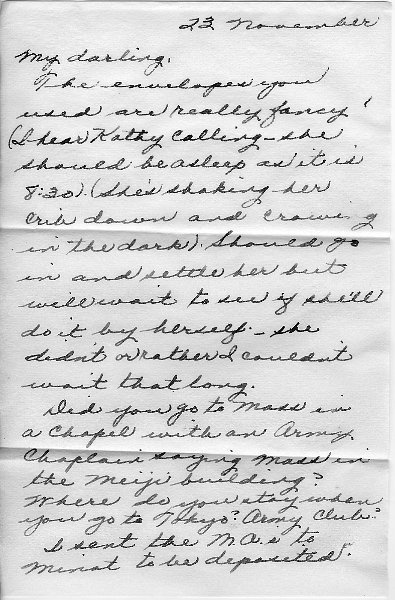 23 November
My darling,
The envelopes you
used are really fancy!
(I hear Kathy calling - she
should be asleep as it is
8:30) (She's shaking her
crib down and crowing
in the dark). Should go
in and settle her but
will wait to see if she'll
do it by herself. - she
didn't or rather I couldn't
wait that long.
Did you go to Mass in
a Chapel with an Army
Chaplain saying Mass in
the Meiji building?
Where do you stay when
you go to Tokyo? Army Club?
I sent the M.A.s to
Minot to be deposited.